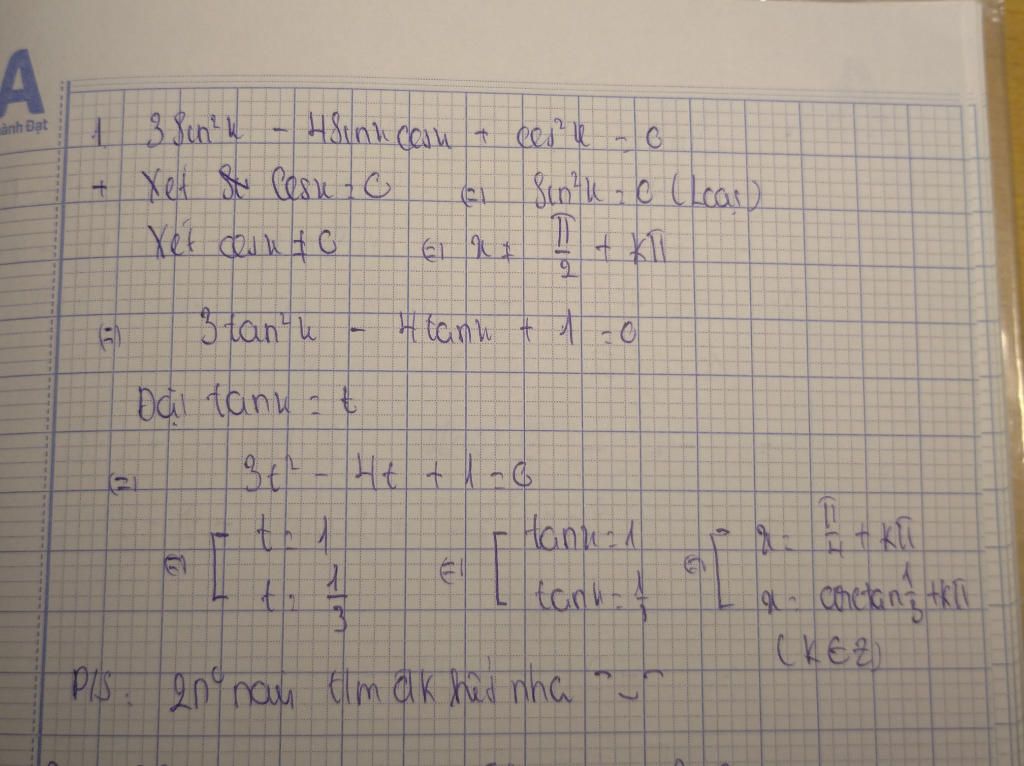 A
ành Đạt
1 3sin²x - 4sinxcosx + cos²x = 0
+ Xét cosx = 0 (=) sin²x = 0 (Loại)
Xét cosx ≠ 0 (=) x ≠ π/2 + kπ
(=) 3tan²x - 4tanx + 1 = 0
Đặt tanx = t
(=) 3t² - 4t + 1 = 0
(=) [ t = 1 (=) [ tanx = 1 (=) [ x = π/4 + kπ
t = 1/3 tanx = 1/3 x = arctan 1/3 + kπ
(k ∈ Z)
P/S: 2n⁰ nay t/m đk hết nha